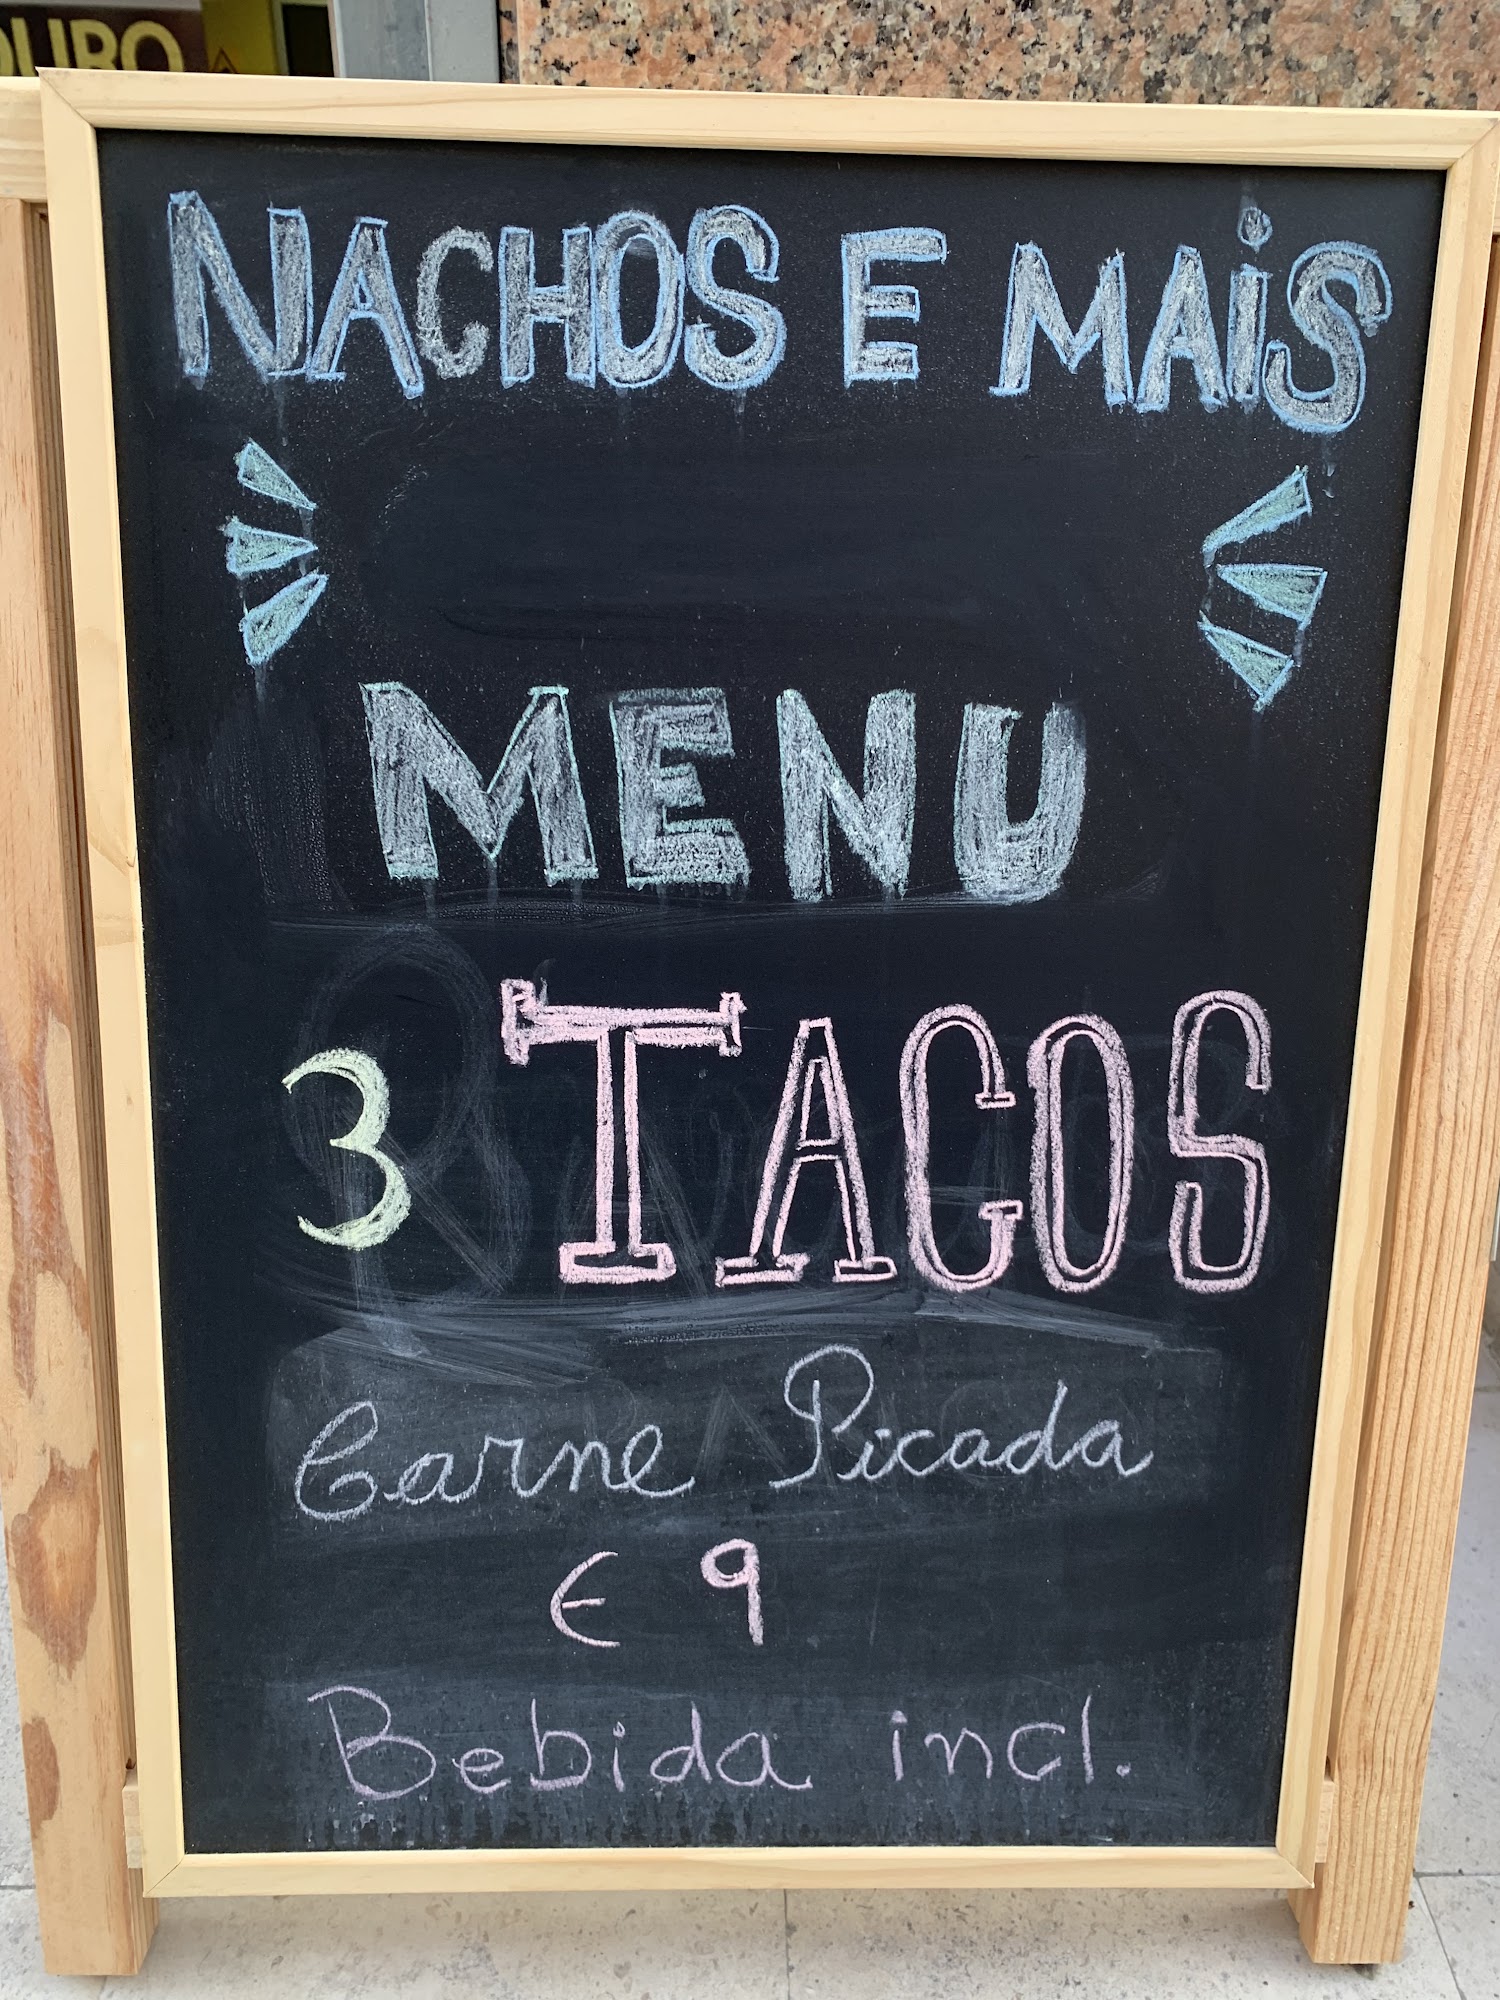 OURO
NACHOS E MAiS
MENU
3 TACOS
Carne Picada
€ 9
Bebida incl.